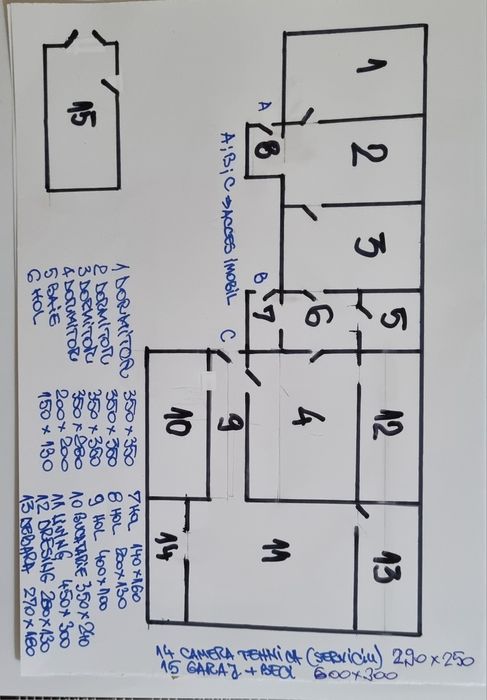 1
2
3
4
5
6
7
8
9
10
11
12
13
14
15
A
B
C
A;B;C → ACCES IMOBIL
1 DORMITOR 350 x 350
2 DORMITOR 350 x
3 DORMITOR 350 x
4 DORMITOR 350 x 280
5 BAIE 200 x 200
6 HOL 150 x 130
7 HOL 140 x 160
8 HOL 200 x 130
9 HOL 400 x 100
10 BUCATARIE 350 x 240
11 LIVING 450 x 300
12 DRESING 280 x 130
13 DEBARA 270 x 180
14 CAMERA TEHNICA (SERVICIU) 290 x 250
15 GARAJ + BECI 600 x 300